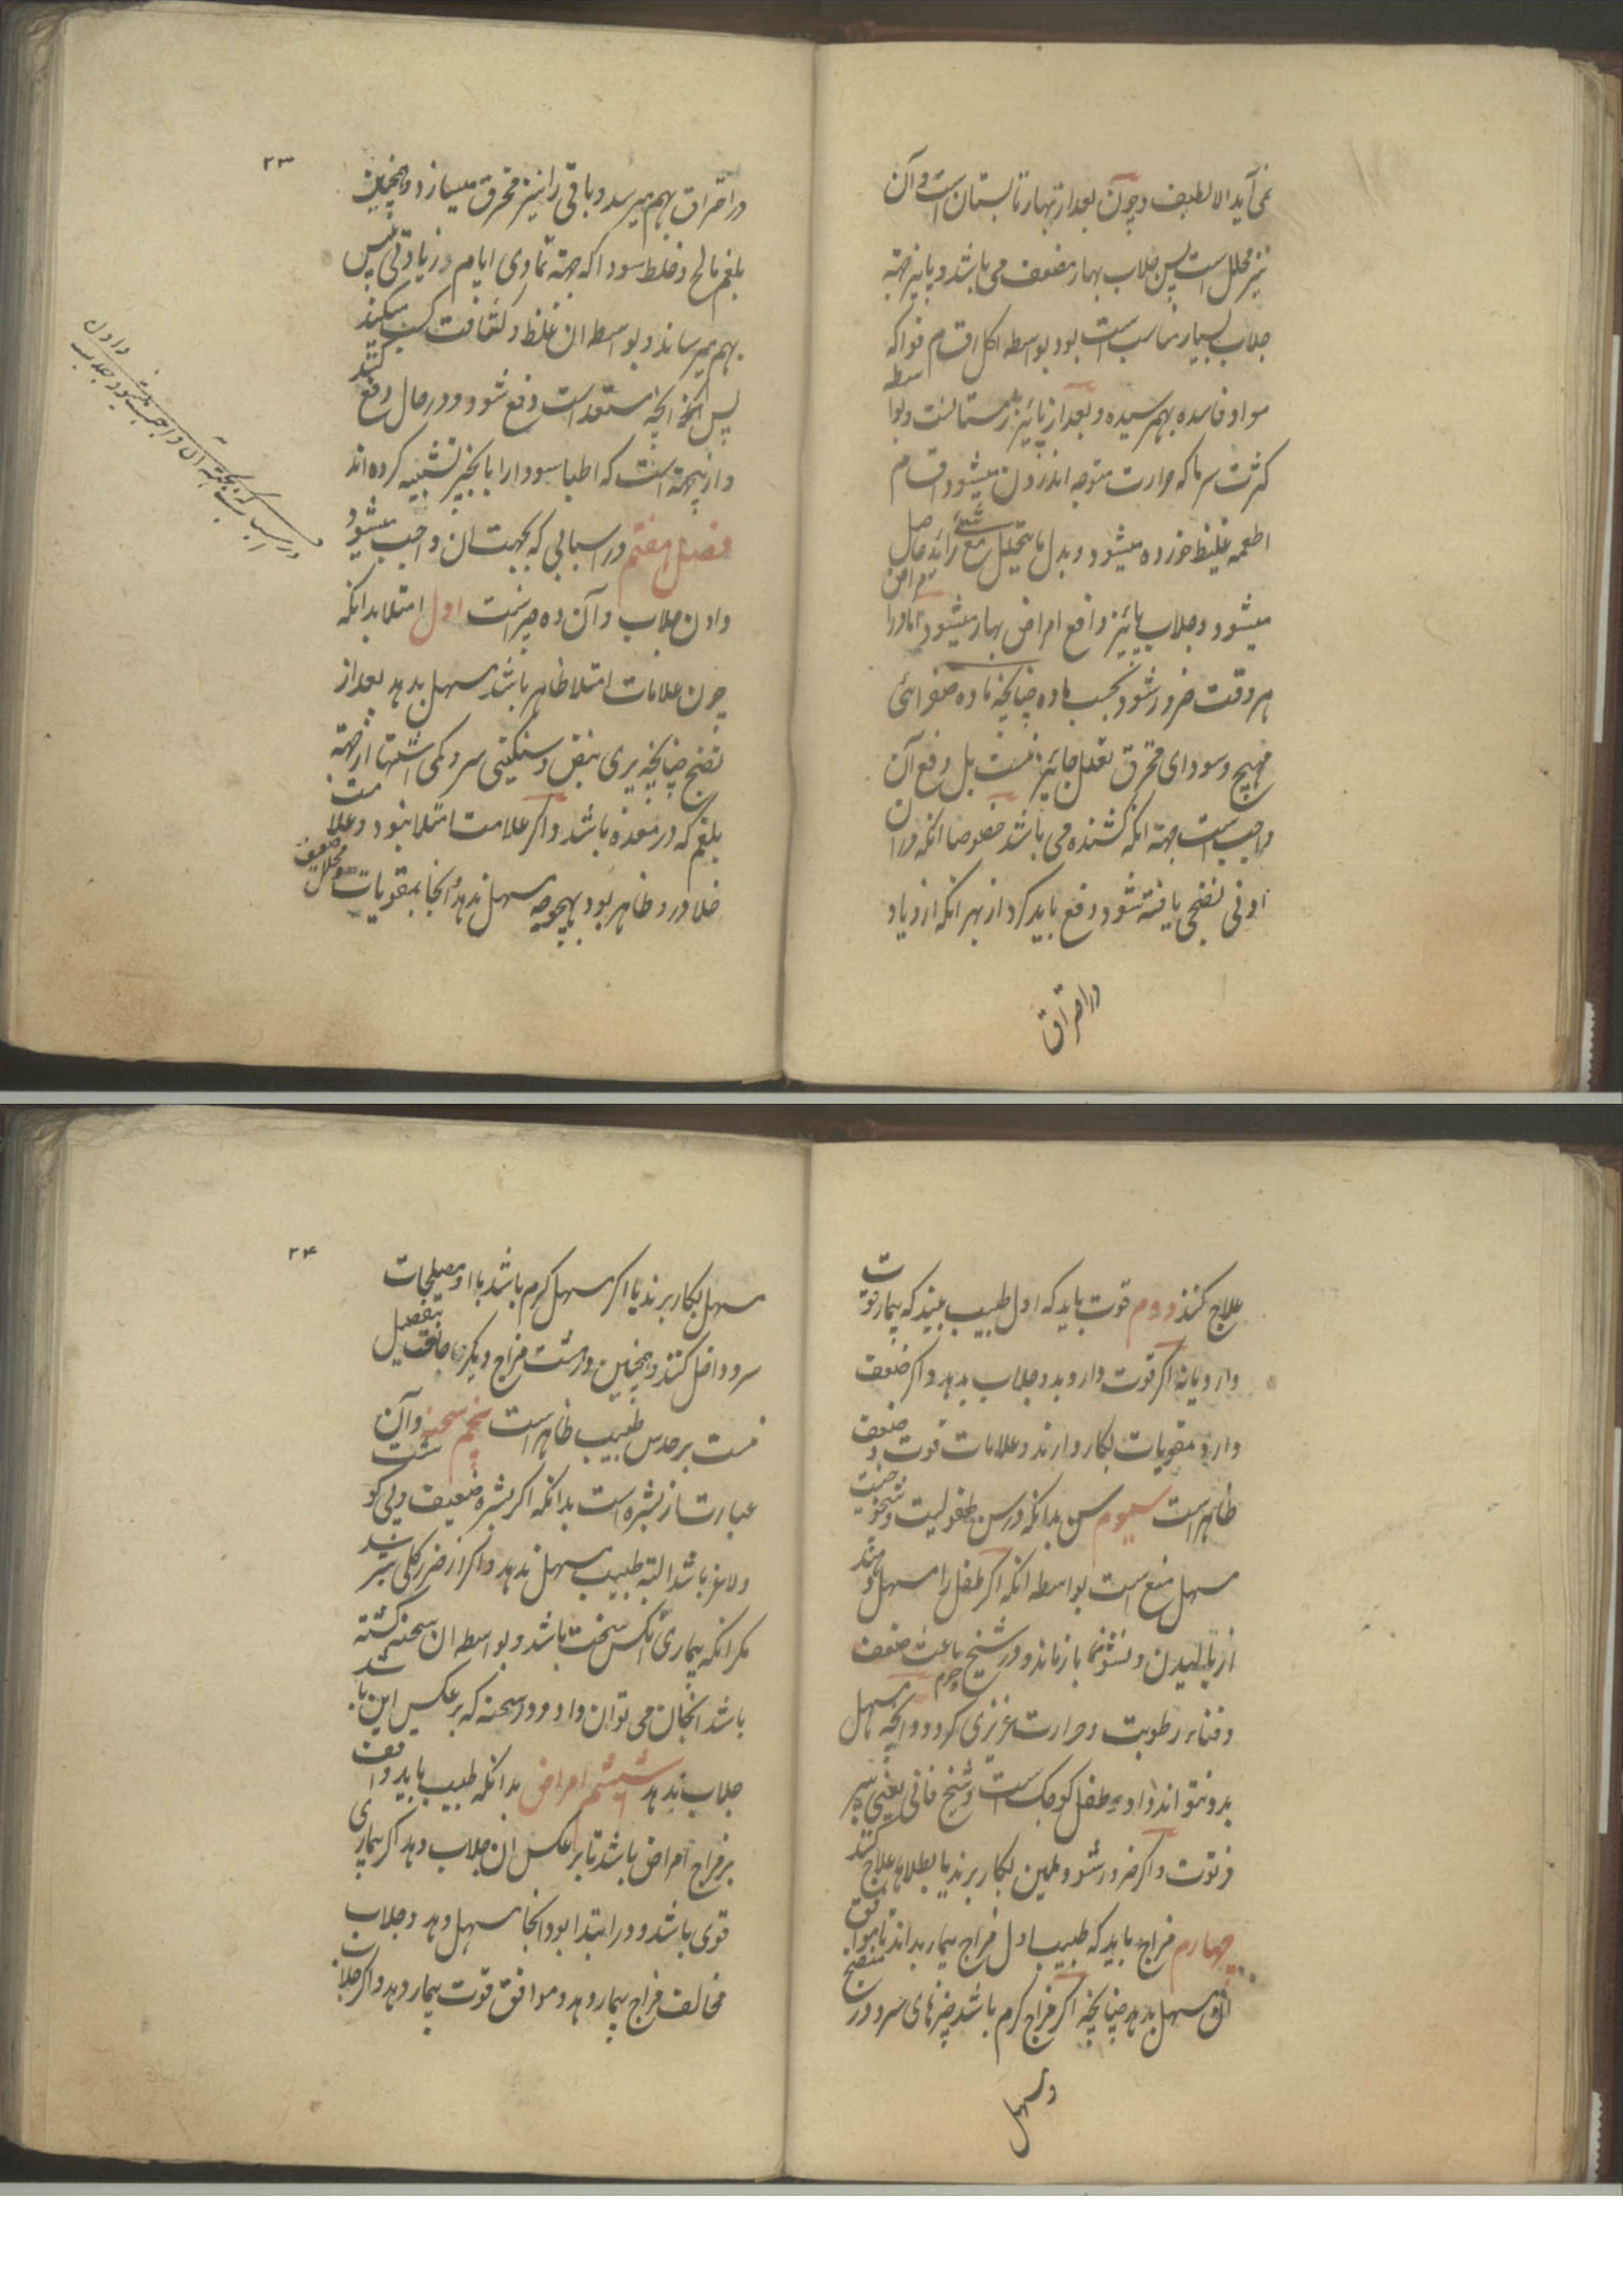 نمی آید الا لطیف و چون بعد از بهار تابستان است و آن
نیز محلل است پس جلاب بهار مضعف می باشد و پاییز جهته
جلاب بسیار مناسب است بود بواسطه اکل اقسام فواکه
مواد فاسده بهم رسیده و بعد از پائیز زمستانست و بواسطه
کثرت سرما که حرارت متوجه اندرون میشود و اقسام
اطعمه غلیظ خورده میشود و بدل ما یتحلل مع شئ زائد حاصل
میشود و جلاب پائیز دافع امراض بهار میشود اما در امراض
هر وقت ضرور شود بحسب ماده چنانچه ماده صفرائی
مهیج و سودای محترق تعلل جائیز نیست بل دفع آن
واجب است جهته انکه کشنده می باشد خصوصا انکه در ان
ادنی نضجی یافته شود دفع باید کرد از بهر انکه ازدیاد
در احتراق
۲۳
در احتراق بهم میرسد و باقی را نیز محترق میسازد و همچنین
بلغم مالح و خلط سودا که جهته تمادی ایام و زیادتی یبس
بهم میرساند و بواسطه ان غلظ و کثافت کسب میکند
پس انچه مستعد است دفع شود و در حال دفع کنند
و ازینجهته است که اطبا سودا را با بخیر تشبیه کرده اند
فصل هفتم در اسبابی که بجهت ان واجب میشود
دادن جلاب و آن ده چیز است اول امتلا بدانکه
چون علامات امتلا ظاهر باشد مسهل بدهد بعد از
نضج چنانچه پری نبض و سنکینی سر و کمی اشتها از جهته
بلغم که در معده باشد و اکر علامت امتلا نبود و علامت
خلا در و ظاهر بود بهیچوجه مسهل ندهد و انجا بمقویات محلل ضعف
در اسبابی که بجهته آن واجب میشود جلاب دادن
علاج کنند دوم قوت باید که اول طبیب بیند که بیمار قوت
دارد یا نه اکر قوت دارد بدو جلاب بدهد و اکر ضعف
دارد مقویات بکار دارند و علامات قوت و ضعف
ظاهر است سیوم سن بدانکه در سن طفولیت و شیخوخیت
مسهل منع است بواسطه انکه اکر طفل را مسهل دهند
از بالیدن و نشو نما باز ماند و در شیخ باعث ضعف
و فناء رطوبت و حرارت غریزی کردد و انچه مسهل
بدو نتواند داد طفل کوچک است و شیخ فانی یعنی پیر
فرتوت و اکر ضرور شود ملین بکار برند یا بطلاها علاج کنند
چهارم مزاج باید که طبیب اول مزاج بیمار بداند تا موافق
ان مسهل بدهد چنانچه اکر مزاج کرم باشد چیزهای سرد در منضج
و مسهل
۲۴
مسهل بکار برند یا اکر مسهل کرم باشد با او مصلحات
سرد داخل کنند و همچنین درشت مزاج دیکر بتفصیل
نیست بر حدس طبیب ظاهر است پنجم سحنه و آن
عبارت از بشره است بدانکه اکر بشره ضعیف و بی کوشت
و لاغر باشد البته طبیب مسهل ندهد و اکر از ضرر کلی ترسد
مکر انکه بیماری انکس سخت باشد و بواسطه ان سحنه کشته
باشد انجان می توان داد و در سحنه که بر عکس این باشد
جلاب ندهد ششم امراض بدانکه طبیب باید واقف
بر مزاج امراض باشد تا بر عکس ان جلاب دهد اکر بیماری
قوی باشد و در ابتدا بود انجا مسهل دهد و جلاب
مخالف مزاج بیمار دهد و موافق قوت بیمار دهد و اکر جلاب